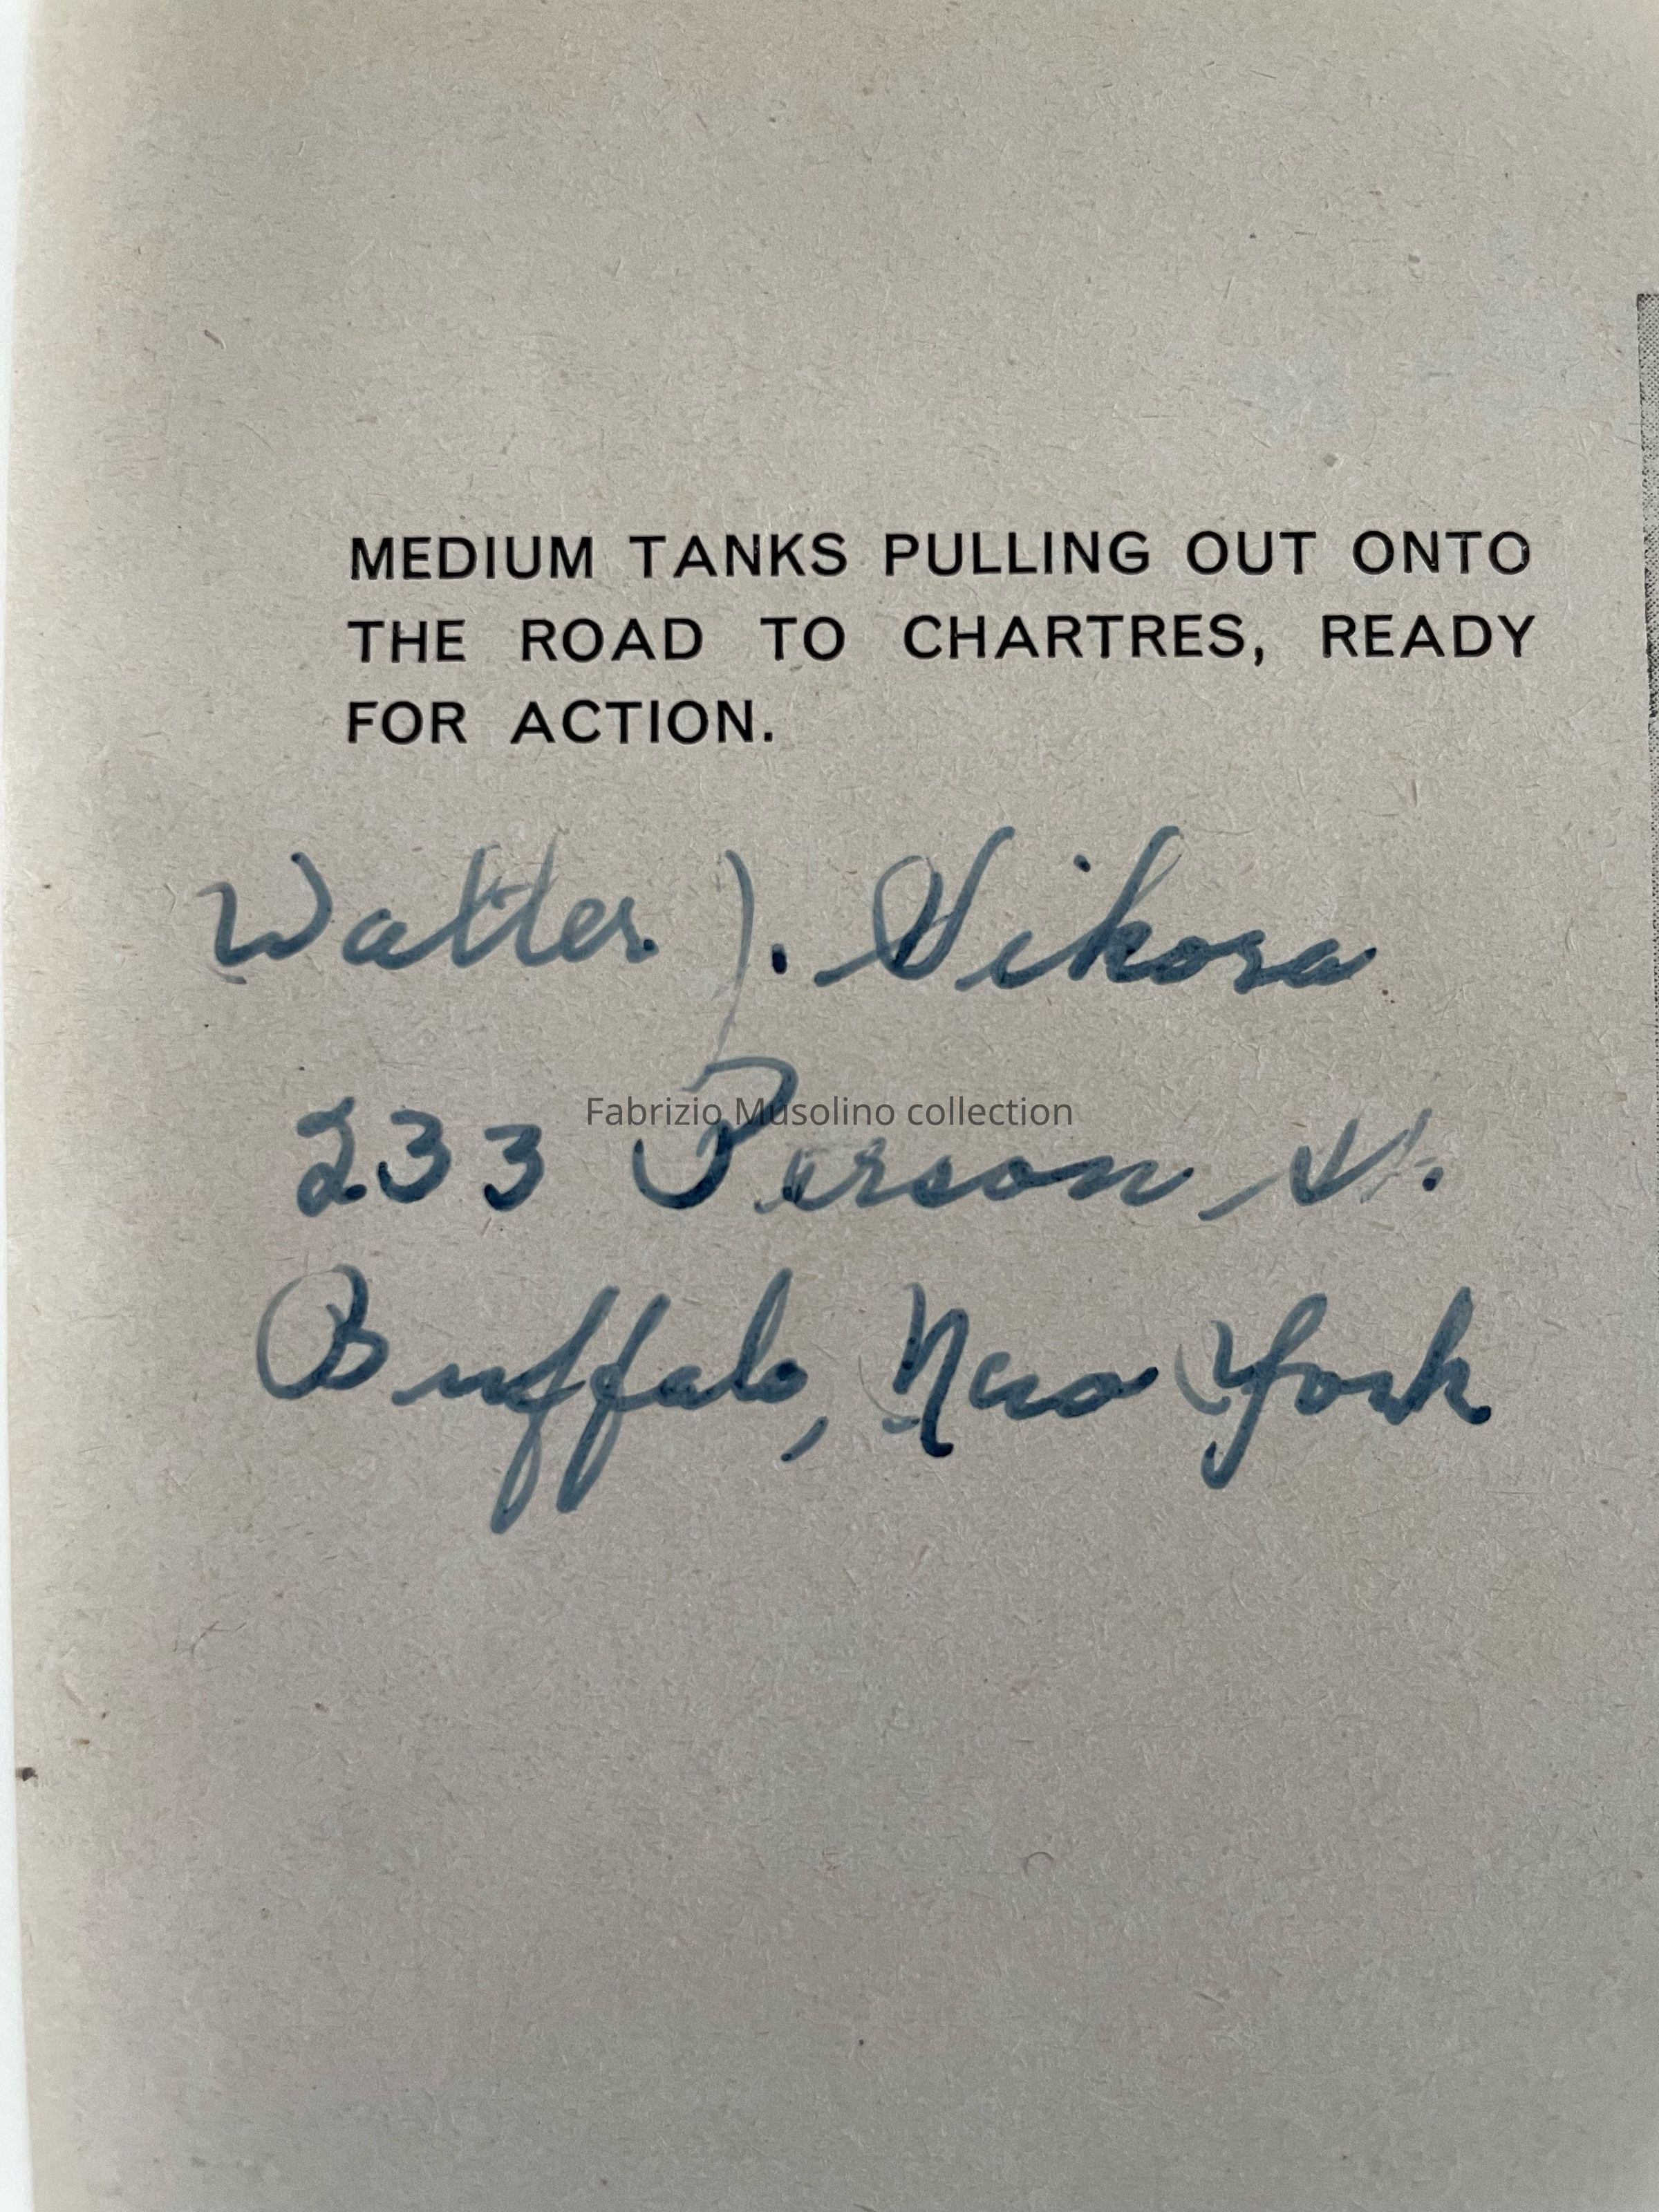 MEDIUM TANKS PULLING OUT ONTO
THE ROAD TO CHARTRES, READY
FOR ACTION.
Walter J. Sikora
Fabrizio Musolino collection
233 Person St.
Buffalo, New York